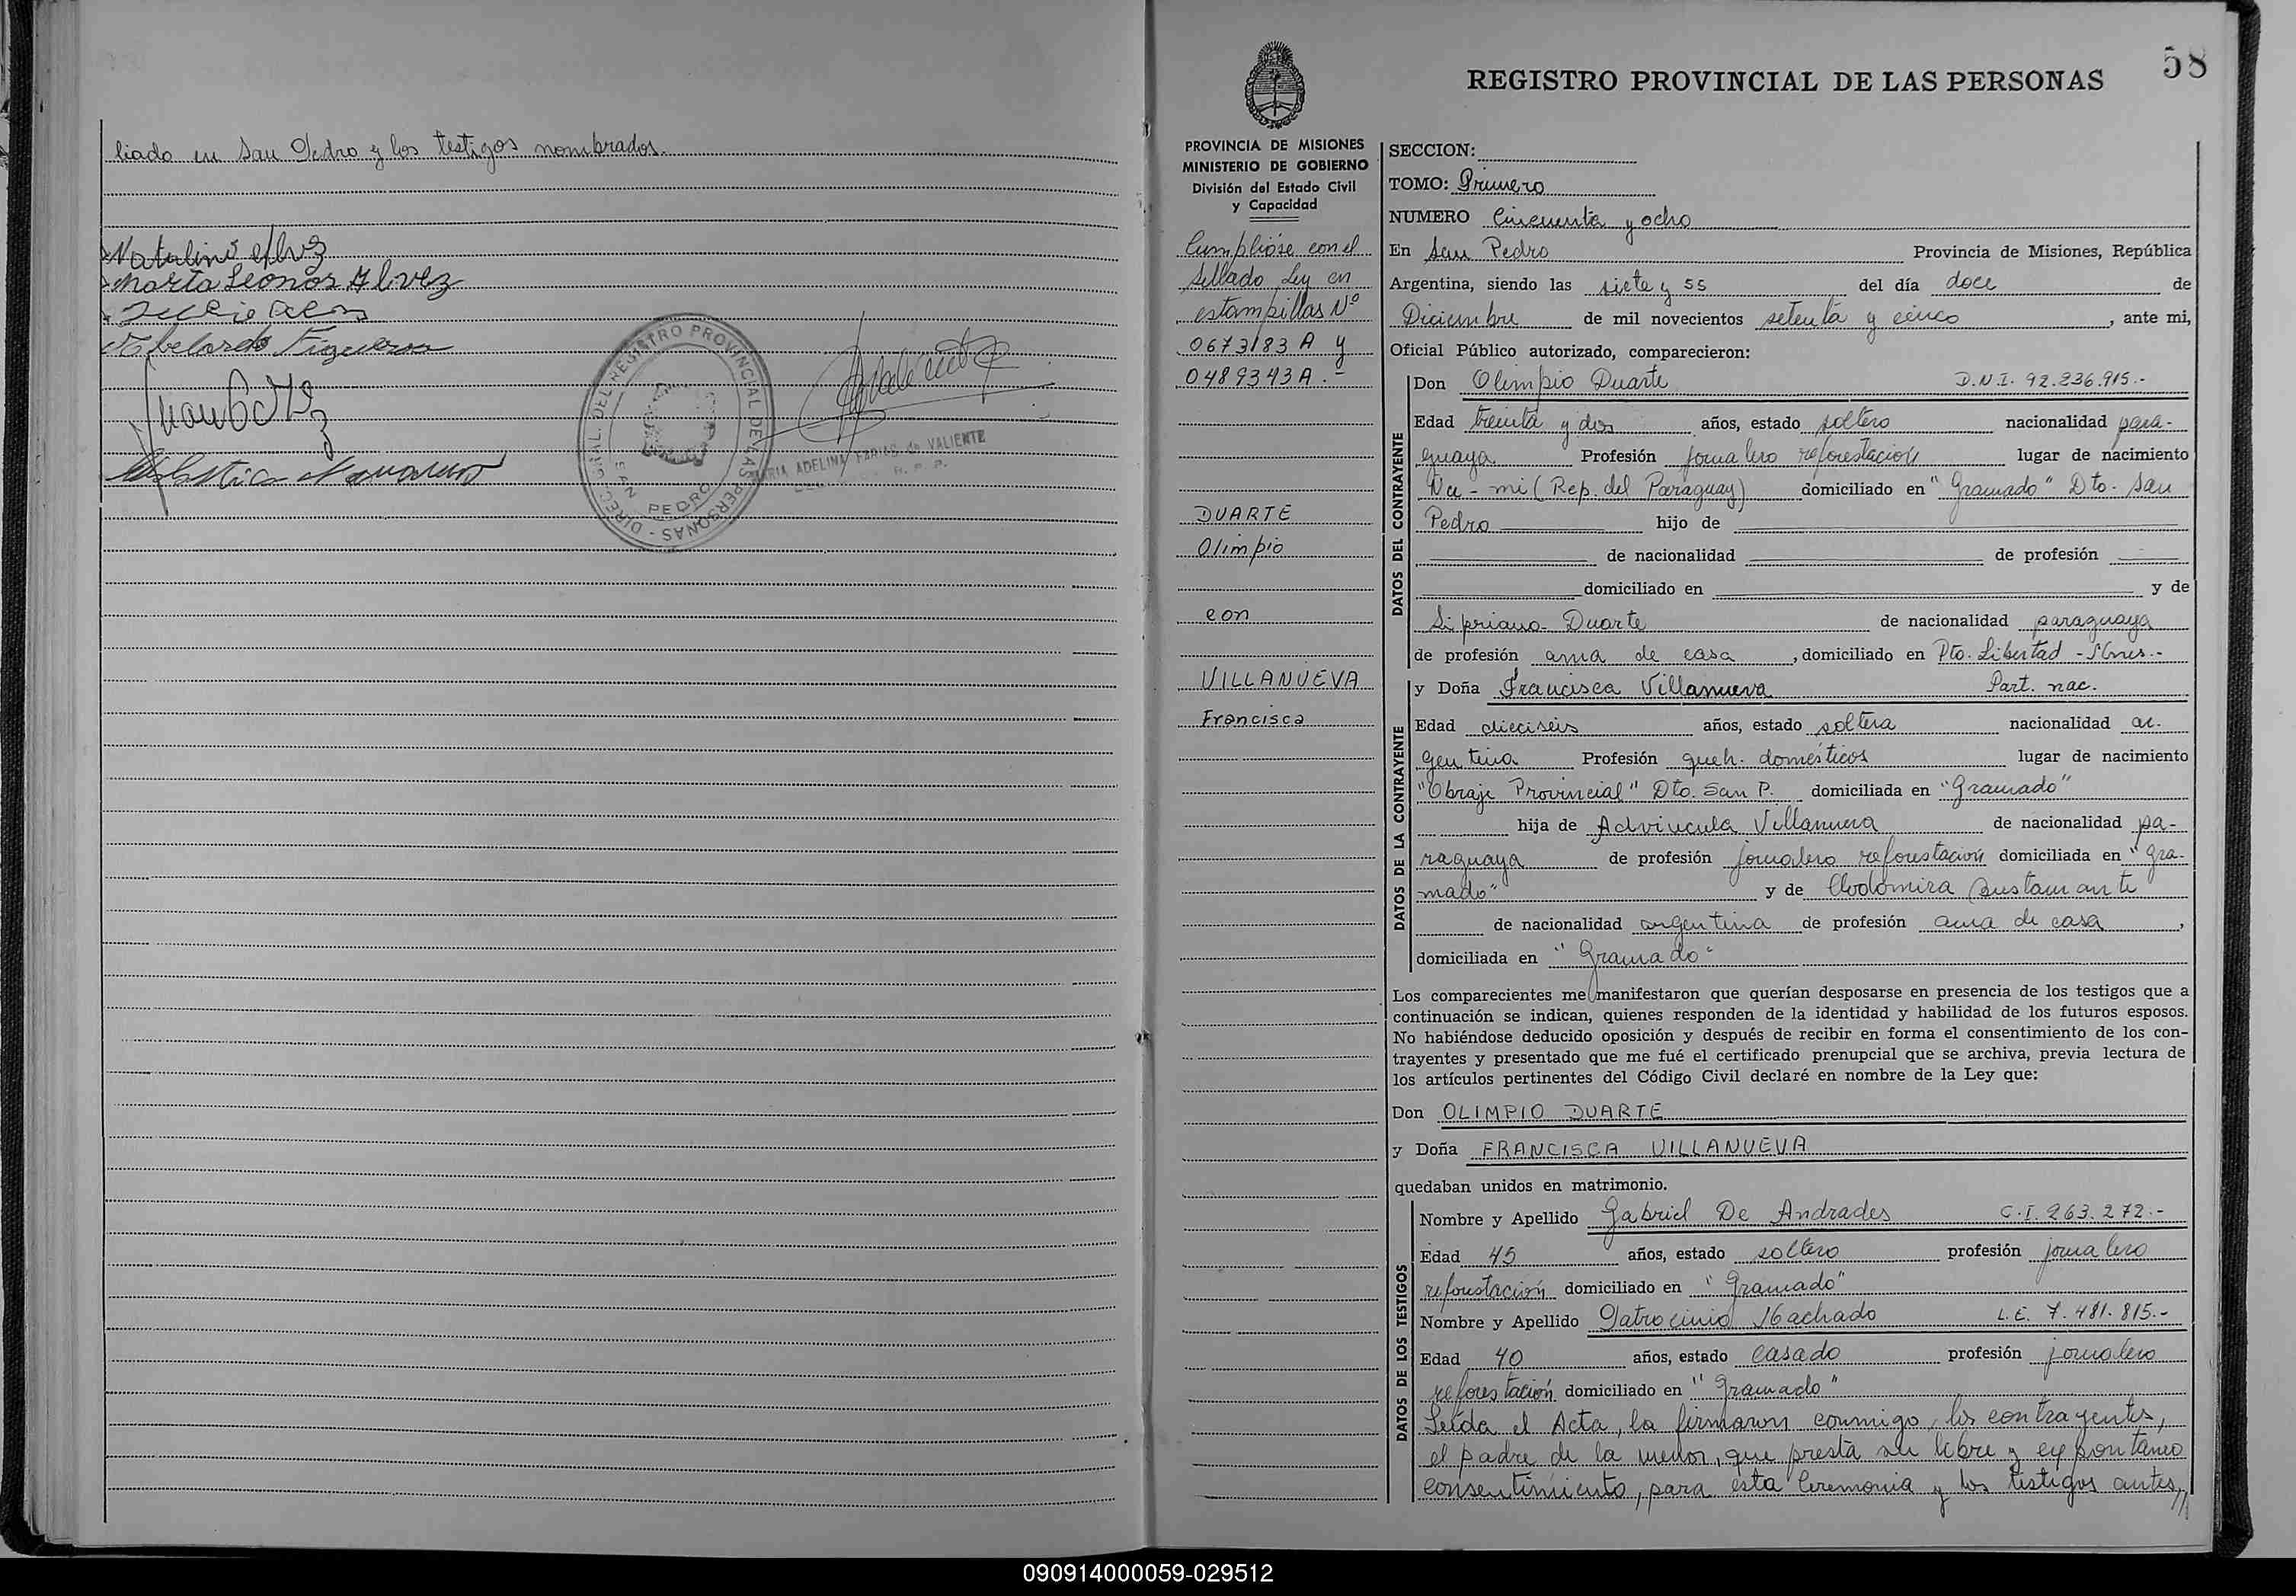 liado en San Pedro y los testigos nombrados.
Marta Leonor Alvez
Abelardo Figueroa
DIREC. GRAL. DEL REGISTRO PROVINCIAL DE LAS PERSONAS -
SAN PEDRO
MARIA ADELINA FARIAS de VALIENTE
58
REGISTRO PROVINCIAL DE LAS PERSONAS
PROVINCIA DE MISIONES
MINISTERIO DE GOBIERNO
División del Estado Civil
y Capacidad
Cumplióse con el
sellado Ley en
estampillas Nº
0673183 A y
0489343A.-
DUARTE
Olimpio
con
VILLANUEVA
Francisca
SECCION:
TOMO: Primero
NUMERO Cincuenta y ocho
En San Pedro Provincia de Misiones, República
Argentina, siendo las siete y 55 del día doce de
Diciembre de mil novecientos setenta y cinco, ante mi,
Oficial Público autorizado, comparecieron:
DATOS DEL CONTRAYENTE
Don Olimpio Duarte D.N.I. 92.236.915.-
Edad treinta y dos años, estado soltero nacionalidad para-
guaya Profesión jornalero reforestación lugar de nacimiento
Ña-mi (Rep. del Paraguay) domiciliado en "Gramado" Dto. San
Pedro hijo de
de nacionalidad de profesión
domiciliado en y de
Sipriana Duarte de nacionalidad paraguaya
de profesión ama de casa, domiciliado en Pto. Libertad - Mnes.-
DATOS DE LA CONTRAYENTE
y Doña Francisca Villanueva Part. nac.
Edad dieciseis años, estado soltera nacionalidad ar-
gentina Profesión queh. domésticos lugar de nacimiento
"Obraje Provincial" Dto. San P. domiciliada en "Gramado"
hija de Advincula Villanueva de nacionalidad pa-
raguaya de profesión jornalero reforestación domiciliada en "Gra-
mado" y de Clodomira Bustamante
de nacionalidad argentina de profesión ama de casa,
domiciliada en "Gramado"
Los comparecientes me manifestaron que querían desposarse en presencia de los testigos que a
continuación se indican, quienes responden de la identidad y habilidad de los futuros esposos.
No habiéndose deducido oposición y después de recibir en forma el consentimiento de los con-
trayentes y presentado que me fué el certificado prenupcial que se archiva, previa lectura de
los artículos pertinentes del Código Civil declaré en nombre de la Ley que:
Don OLIMPIO DUARTE
y Doña FRANCISCA VILLANUEVA
quedaban unidos en matrimonio.
DATOS DE LOS TESTIGOS
Nombre y Apellido Gabriel De Andrades C.I. 263.272.-
Edad 45 años, estado soltero profesión jornalero
reforestación domiciliado en "Gramado"
Nombre y Apellido Patrocinio Machado L.E. 7.481.815.-
Edad 40 años, estado casado profesión jornalero
reforestación domiciliado en "Gramado"
Leída el Acta, la firmaron conmigo, los contrayentes,
el padre de la menor, que presta su libre y expontaneo
consentimiento, para ésta Ceremonia y los testigos antes //
090914000059-029512